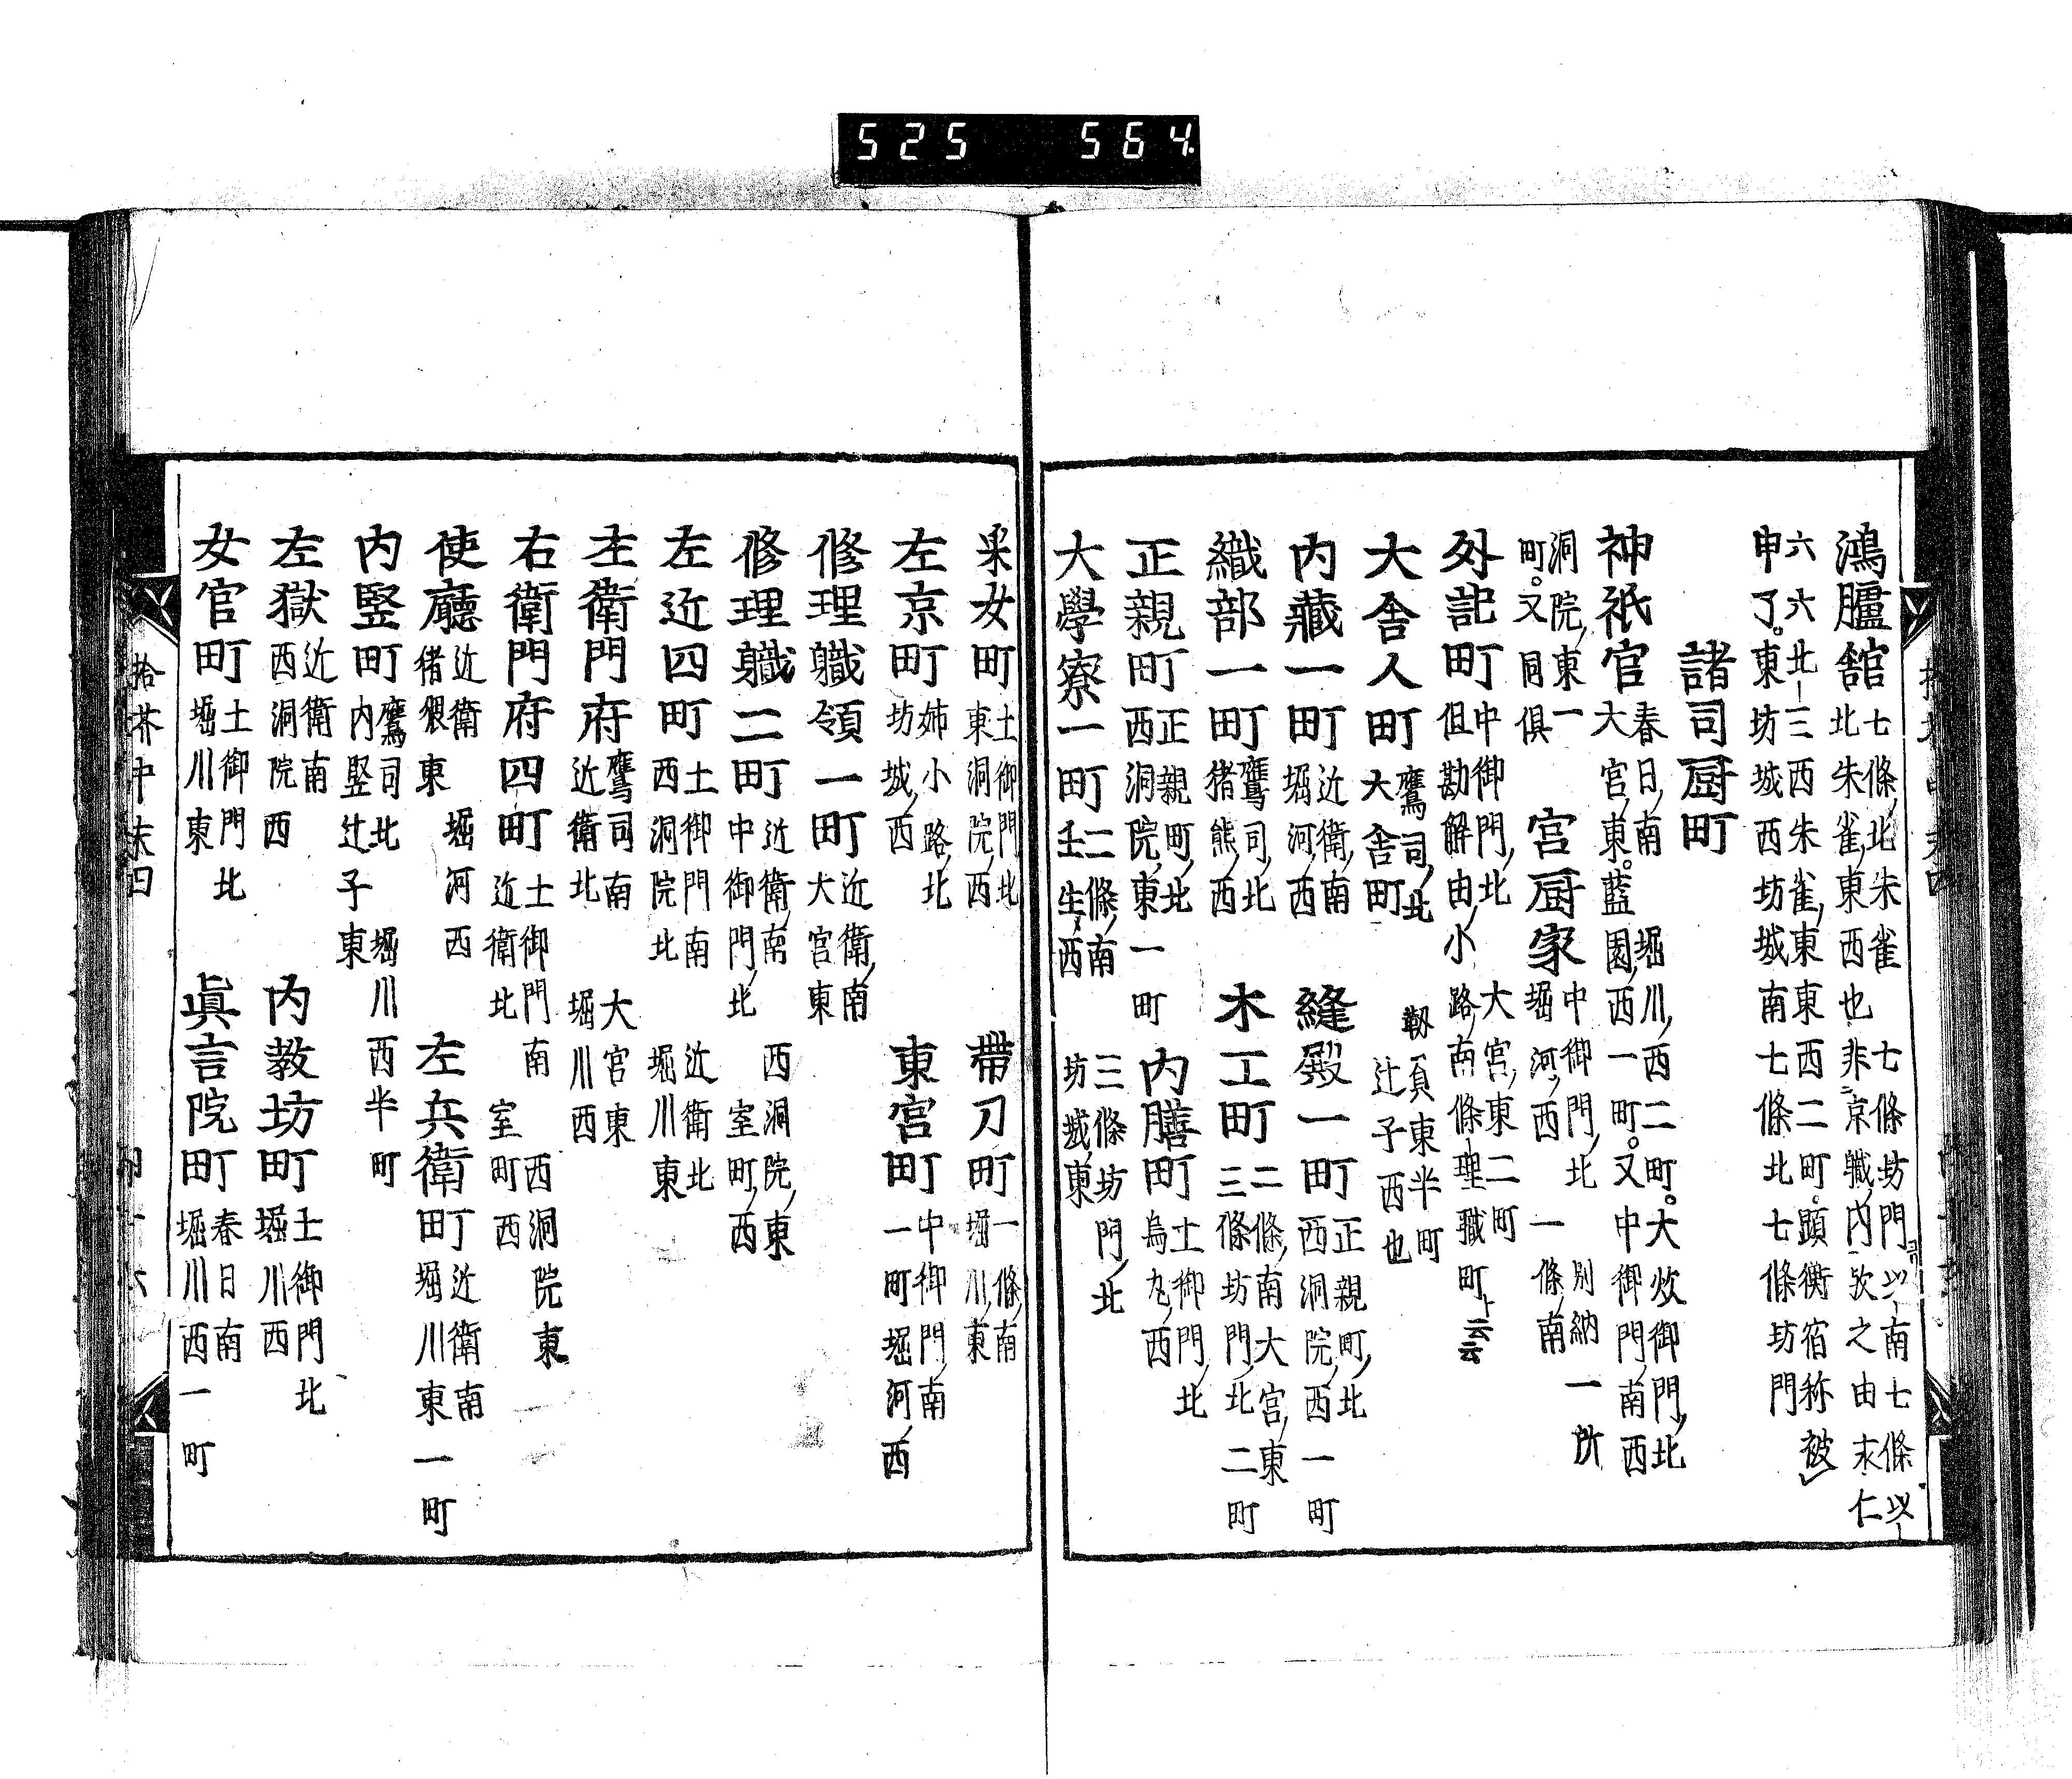 525 564
鴻臚舘 七條北朱雀 七條坊門以南七條以
北朱雀東西也 非京職内欤之由求仁
六六北三西朱雀東東西二町顕衡宿称被
申了東坊城西坊城南七條北七條坊門
諸司厨町
神祇官 春日南 堀川西二町大炊御門北
大宮東藍園西一町又中御門南西
洞院東一
町又同俱
宮厨家 中御門北 別納一所
堀河西 一條南
外記町 中御門北 大宮東二町
但勘解由小路南條理職町云云
大舎人町 鷹司北 靱負東半町
大舎町 辻子西也
内藏一町 近衛南
堀河西
縫殿一町 正親町北
西洞院西一町
織部一町 鷹司北
猪熊西
木工町 二條南大宮東
三條坊門北二町
正親町 正親町北
西洞院東一町
内膳町 土御門北
烏丸西
大學寮一町 二條南 三條坊門北
壬生西 坊城東
采女町 土御門北
東洞院西
帶刀町 一條南
堀川東
左京町 姉小路北
坊城西
東宮町 中御門南
一町堀河西
修理軄領一町 近衛南
大宮東
修理軄二町 近衛南 西洞院東
中御門北 室町西
左近四町 土御門南 近衛北
西洞院北 堀川東
左衛門府 鷹司南 大宮東
近衛北 堀川西
右衛門府四町 土御門南 西洞院東
近衛北 室町西
使廳 近衛 堀河西
猪熊東
左兵衛町 近衛南
堀川東一町
内竪町 鷹司北 堀川西半町
内竪辻子東
左獄 近衛南
西洞院西
内教坊町 土御門北
堀川西
女官町 土御門北
堀川東
眞言院町 春日南
堀川西一町
拾芥中末四